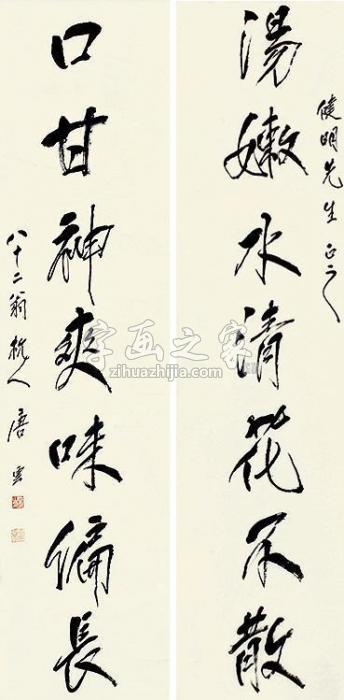 健明先生正之
湯嫩水清花不散
口甘神爽味偏長
八十二翁杭人唐雲
字画之家
zihuazhijia.com